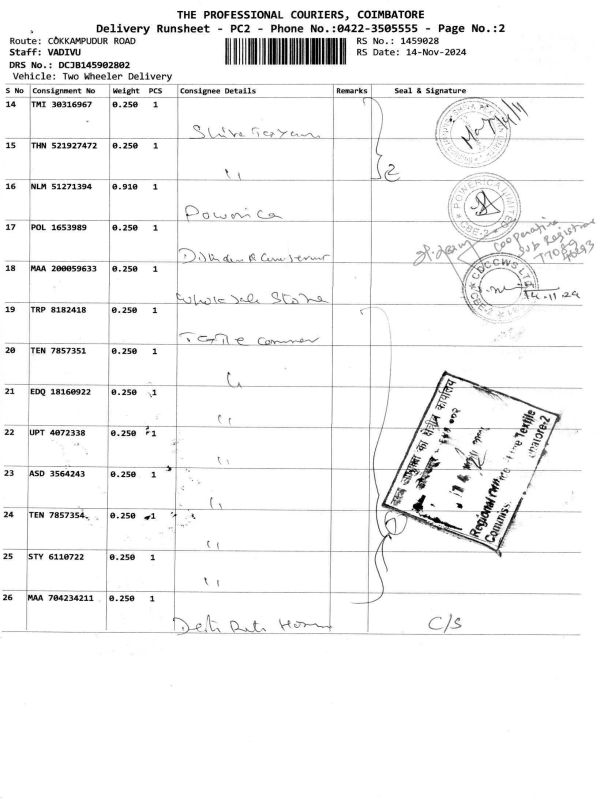 THE PROFESSIONAL COURIERS, COIMBATORE
Delivery Runsheet - PC2 - Phone No.:0422-3505555 - Page No.:2
Route: COKKAMPUDUR ROAD RS No.: 1459028
Staff: VADIVU RS Date: 14-Nov-2024
DRS No.: DCJB145902802
Vehicle: Two Wheeler Delivery
S No Consignment No Weight PCS Consignee Details Remarks Seal & Signature
14 TMI 30316967 0.250 1
15 THN 521927472 0.250 1
2
16 NLM 51271394 0.910 1
Powerica
POWERICA LIMITED
CBE-2
17 POL 1653989 0.250 1
Cooperative
Sub Registrar
18 MAA 200059633 0.250 1
Wholesale Store
CDCCWS LTD
CBE-2
14.11.24
19 TRP 8182418 0.250 1
Textile Commer
20 TEN 7857351 0.250 1
21 EDQ 18160922 0.250 1
22 UPT 4072338 0.250 1
23 ASD 3564243 0.250 1
24 TEN 7857354 0.250 1
25 STY 6110722 0.250 1
26 MAA 704234211 0.250 1
C/S
का क्षेत्रीय कार्यालय
Regional Office of the Textile
Commiss